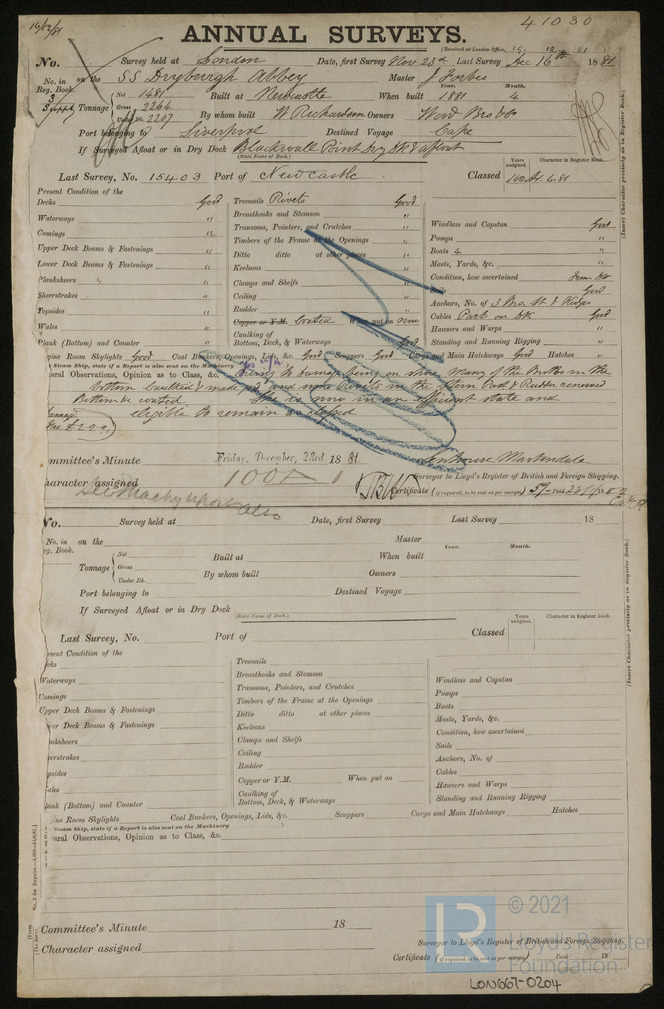 16/12/81
41030
ANNUAL SURVEYS.
(Received at London Office, 15 12th 81)
No. Survey held at London Date, first Survey Nov 23rd Last Survey Dec 16th 1881
No. in Reg. Book. on the SS Dryburgh Abbey Master J Forbes
Tonnage Net 1481 Gross 2264 Under Dk. 2207 Built at Newcastle When built Year. 1881 Month. 4
By whom built W Richardson Owners Wood Bros & Co
Port belonging to Liverpool Destined Voyage Cape
If Surveyed Afloat or in Dry Dock Blackwall Point Dry Dk & afloat
(State Name of Dock.)
Last Survey, No. 15403 Port of Newcastle Classed 100A1. 4.81
Years assigned. Character in Register Book.
(Insert Character precisely as in Register Book.)
Present Condition of the
Decks Good
Waterways "
Comings "
Upper Deck Beams & Fastenings "
Lower Deck Beams & Fastenings "
Planksheers "
Sheerstrakes "
Topsides "
Wales "
Plank (Bottom) and Counter "
Treenails Rivets Good
Breasthooks and Stemson "
Transoms, Pointers, and Crutches "
Timbers of the Frame at the Openings "
Ditto ditto at other places "
Keelsons "
Clamps and Shelfs "
Ceiling "
Rudder "
Copper or Y.M. Coated When put on now
Caulking of
Bottom, Deck, & Waterways Good
Windlass and Capstan Good
Pumps "
Boats 4 "
Masts, Yards, &c. "
Condition, how ascertained From Dk
Good
Anchors, No. of 3 Brs. St. & Kedge
Cables Part on Dk Good
Hawsers and Warps "
Standing and Running Rigging "
gine Room Skylights Good Coal Bunkers, Openings, Lids, &c. Good Scuppers Good Cargo and Main Hatchways Good Hatches "
Steam Ship, state if a Report is also sent on the Machinery
eral Observations, Opinion as to Class, &c. Owing to damage being on shore Many of the Butts in the
bottom Caulked & made good and some Rivets in the Stern Post & Rudder renewed
Bottom be coated. She is now in an efficient state and
eligible to remain as classed
ommittee's Minute Friday, December, 23rd 1881.
haracter assigned 100A1
Surveyor to Lloyd's Register of British and Foreign Shipping.
Certificate (if required, to be sent as per margin)
See Machy report also
No. Survey held at Date, first Survey Last Survey 18
No. in eg. Book. on the Master
Tonnage Net Gross Under Dk. Built at When built Year. Month.
By whom built Owners
Port belonging to Destined Voyage
If Surveyed Afloat or in Dry Dock
(State Name of Dock.)
Last Survey, No. Port of Classed
Years assigned. Character in Register Book.
(Insert Character precisely as in Register Book.)
esent Condition of the
cks
Waterways
Comings
Upper Deck Beams & Fastenings
wer Deck Beams & Fastenings
anksheers
eerstrakes
psides
ales
ank (Bottom) and Counter
Treenails
Breasthooks and Stemson
Transoms, Pointers, and Crutches
Timbers of the Frame at the Openings
Ditto ditto at other places
Keelsons
Clamps and Shelfs
Ceiling
Rudder
Copper or Y.M. When put on
Caulking of
Bottom, Deck, & Waterways
Windlass and Capstan
Pumps
Boats
Masts, Yards, &c.
Condition, how ascertained
Sails
Anchors, No. of
Cables
Hawsers and Warps
Standing and Running Rigging
ine Room Skylights Coal Bunkers, Openings, Lids, &c. Scuppers Cargo and Main Hatchways Hatches
Steam Ship, state if a Report is also sent on the Machinery
eral Observations, Opinion as to Class, &c.
Committee's Minute 18
Character assigned
Surveyor to Lloyd's Register of British and Foreign Shipping.
Certificate (if required, to be sent as per margin) Paid 18
© 2021
LR
Lloyd's Register
Foundation
LON667-0204